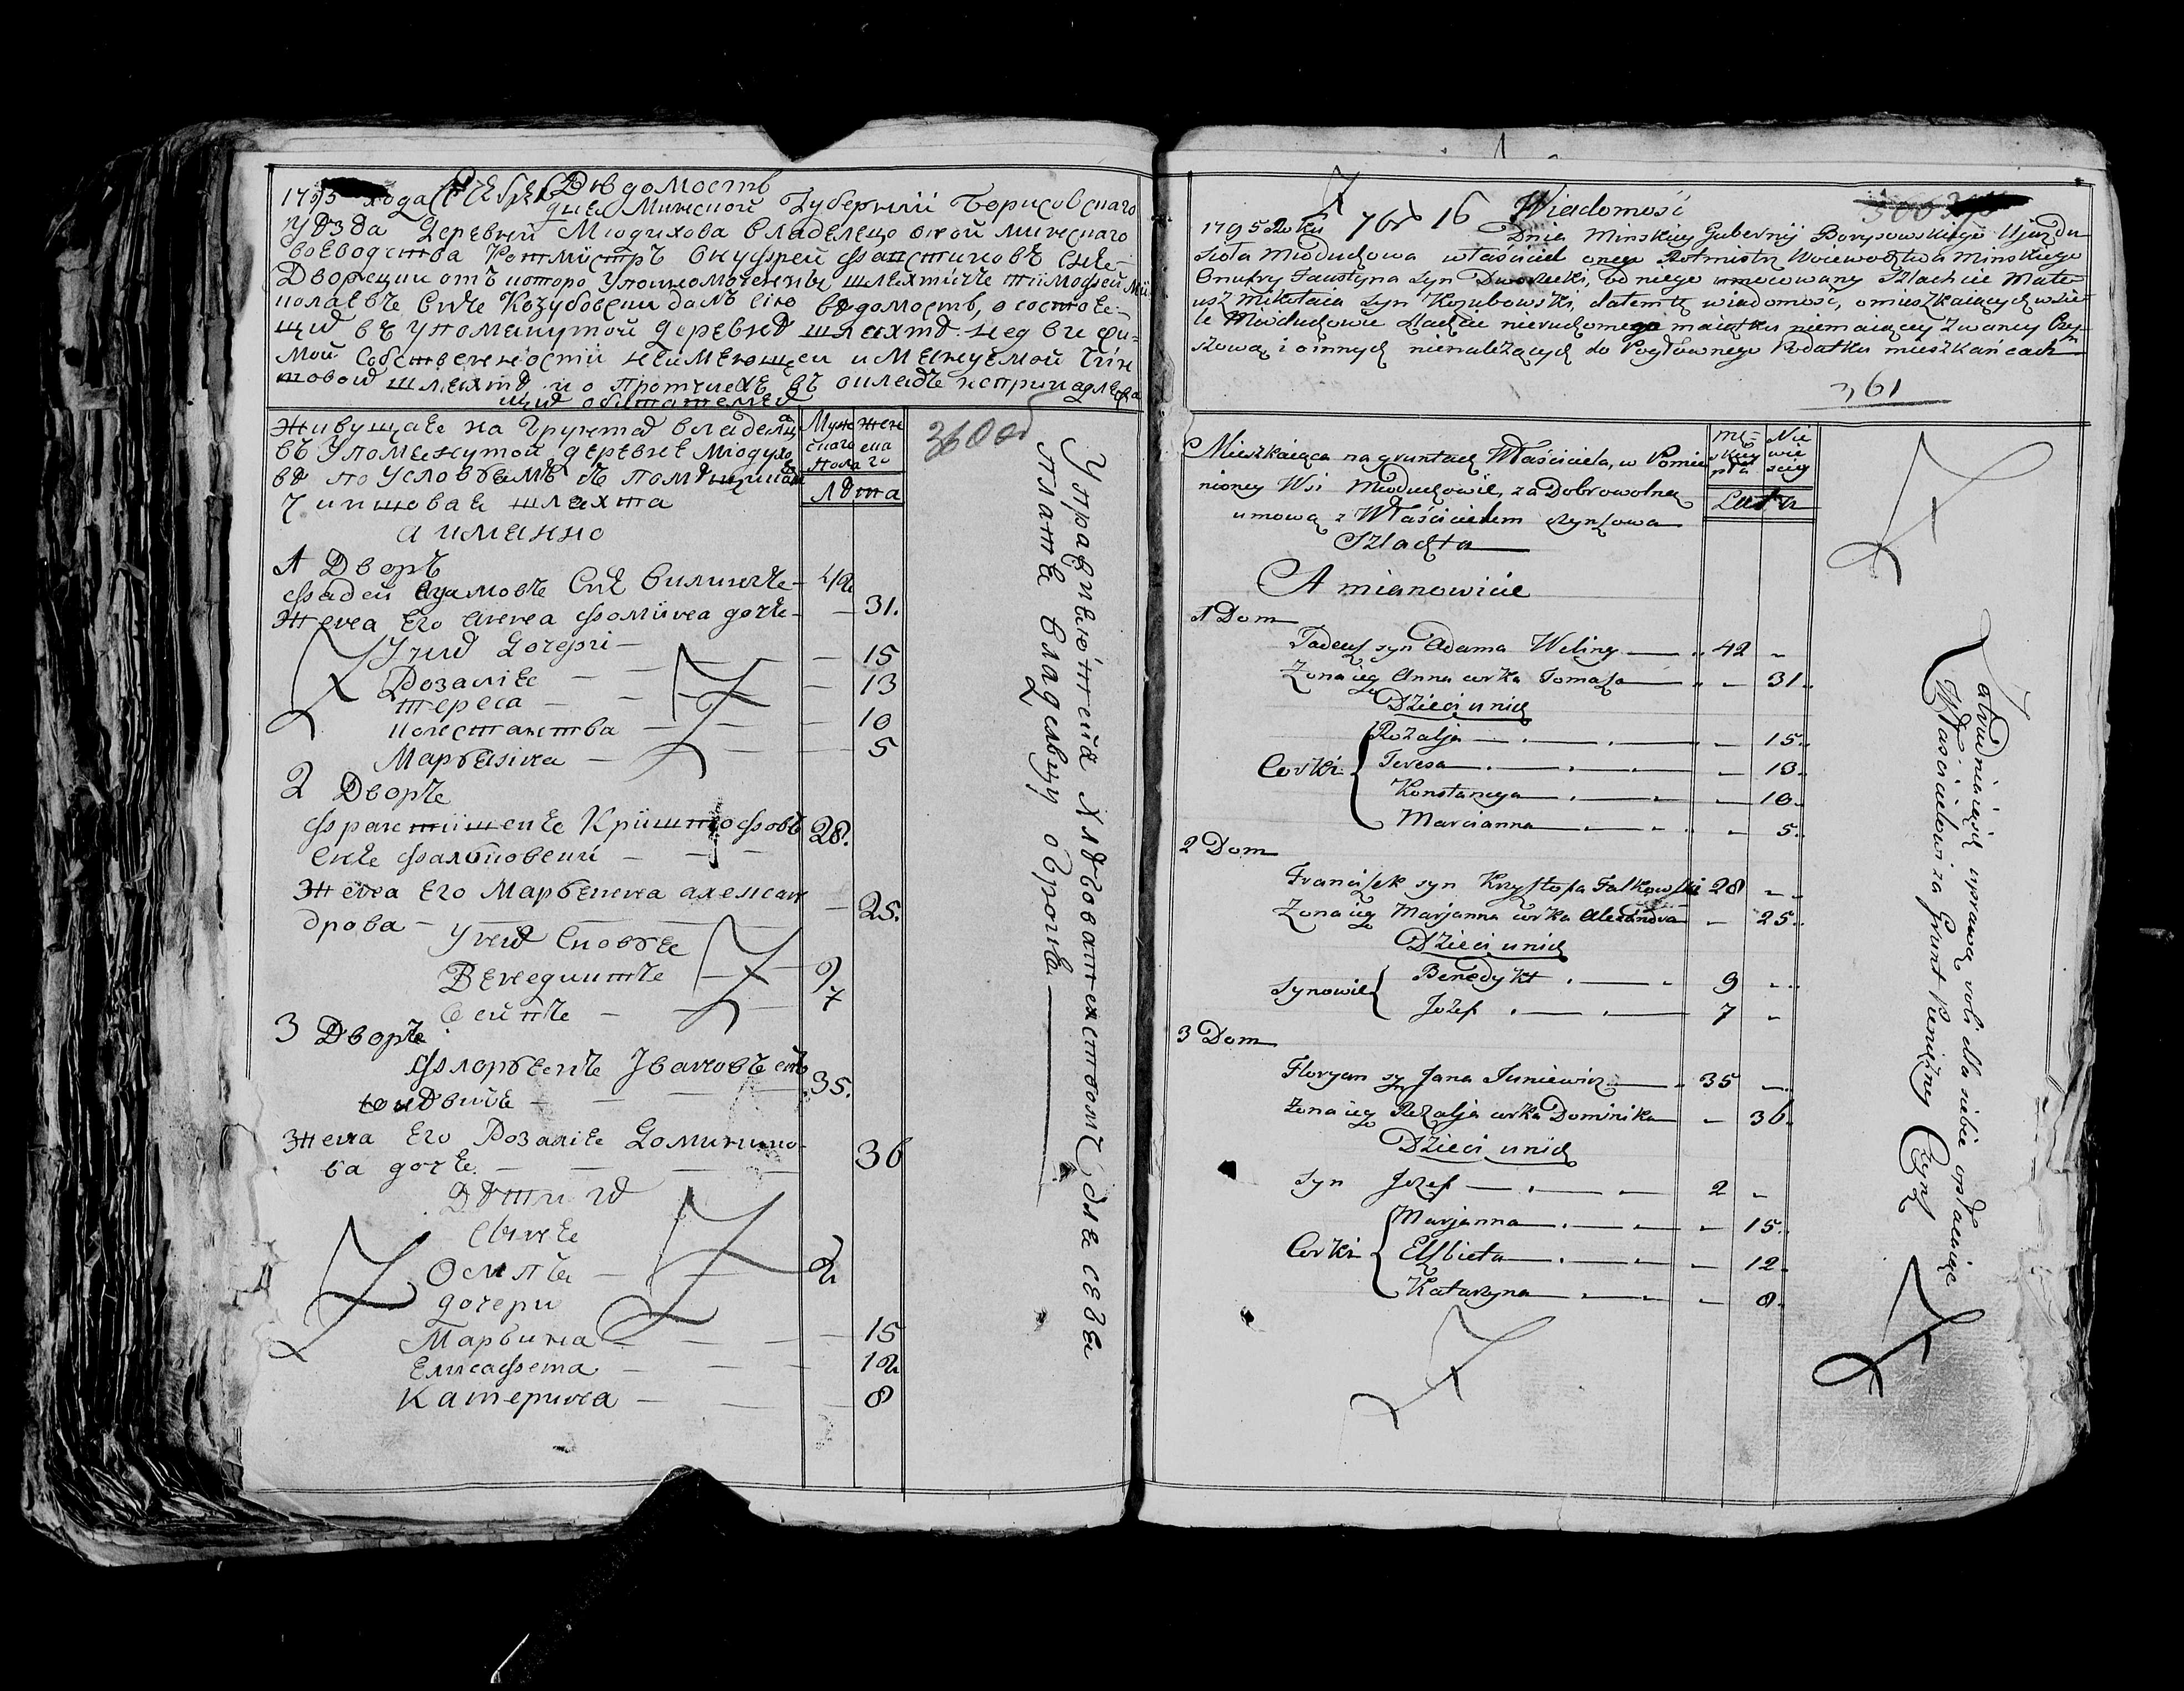 Вѣдомость
1795 года
дня Минской Губернии Борисовскаго
уѣзда Деревней Миодихова владелецо оной минскаго
воеводства Ротмистръ Онуфрей Фаустиновъ снъ
Дворецки отъ которо уполномоченны шляхтичъ тимофей
колаевъ Снъ Козубовски далъ сию вѣдомость, о состоѣ-
щиѣ въ упоменутой деревнѣ шляхтѣ недвижи-
мой собственности неимеющеи именуемой Чин
шовоѣ шляхтѣ и о протчихъ въ окладъ непринадлежа
щиѣ обитателеѣ
Живущае на Грунтаѣ владелца
въ упоменутой деревне Миодухо
вѣ по условьямъ съ помѣщикомъ
Чиншовае шляхта
а именно
Муж
скаго
пола
Жен
ска
го
лѣта
360 об
1 Дворъ
Фадеи Адамовъ Снъ Вилингъ - 42
Жена Его Анна Фомина дочъ - 31.
У ниѣ Дочери -
Розалие - 15
тереса - 13
констанства - 10
Марьянна - 5
2 Дворъ
Франтишекъ Криштофовъ 28.
Снъ Фальковски
Жена Его Марьянна алексан
дрова - 25.
У ниѣ Сновье
Бенедиктъ 9
Осипъ - 7
3 Дворъ
Флорьенъ Ивановъ снъ 35.
юнѣвичъ
Жена Его Розалие Доминико-
ва дочъ 36
Дѣти иѣ
Сынъ
Осипъ 2
дочери
Марьина 15
Елисафета - 12
Катерина - 8
Управляютцеиа хлѣбопашествомъ для себѣ
платѣ владельцу оброкъ
7 16 Wiadomość
1795 Roku Dnia Minskiey Gubernij Borysowskiego Ujazdu
Sioła Mioduchowa właściciel onego Rotmistrz Woiewodztwa Minskiego
Onufry Faustyna syn Dworzecki, od niego umocowany Szlachcic Mate
usz Mikołaia syn Kozubowski, dałem tę wiadomość, o mieszkaiących w sie
le Mioduchowie szlachcie nieruchomego maiątku niemaiącey zwaney Czyn
szową i o innych nienależących do Pogłownego Podatku mieszkańcach
361
Mieszkaiąca na gruntach Właściciela, w Pomie
nioney Wsi Mioduchowie, za Dobrowolną
umową z Właścicielem czynszowa
Szlachta
A mianowicie
Mę-
skiey
płci
Nie
wie
sciey
Lata
1 Dom
Tadeusz syn Adama Weling 42
Zona iego Anna curka Tomasza 31.
Dzieci u nich
Rozalja 15.
Curki Teresa 13.
Konstancya 10.
Marcianna 5.
2 Dom
Franciszek syn Krzysztofa Falkowski 28
Zona iego Marjanna curka Alexandra 25.
Dzieci u nich
Synowie Benedykt 9
Jozef 7
3 Dom
Floryan syn Jana Juniewicz 35
Zona iego Rozalja curka Dominika 36.
Dzieci u nich
Syn Jozef 2
Marjanna 15.
Curki Elzbieta 12.
Katarzyna 8.
Zatrudniaiąsię uprawą roli dla siebie opłacaiąc
Właścicielowi za Grunt Pieniężny Czynsz